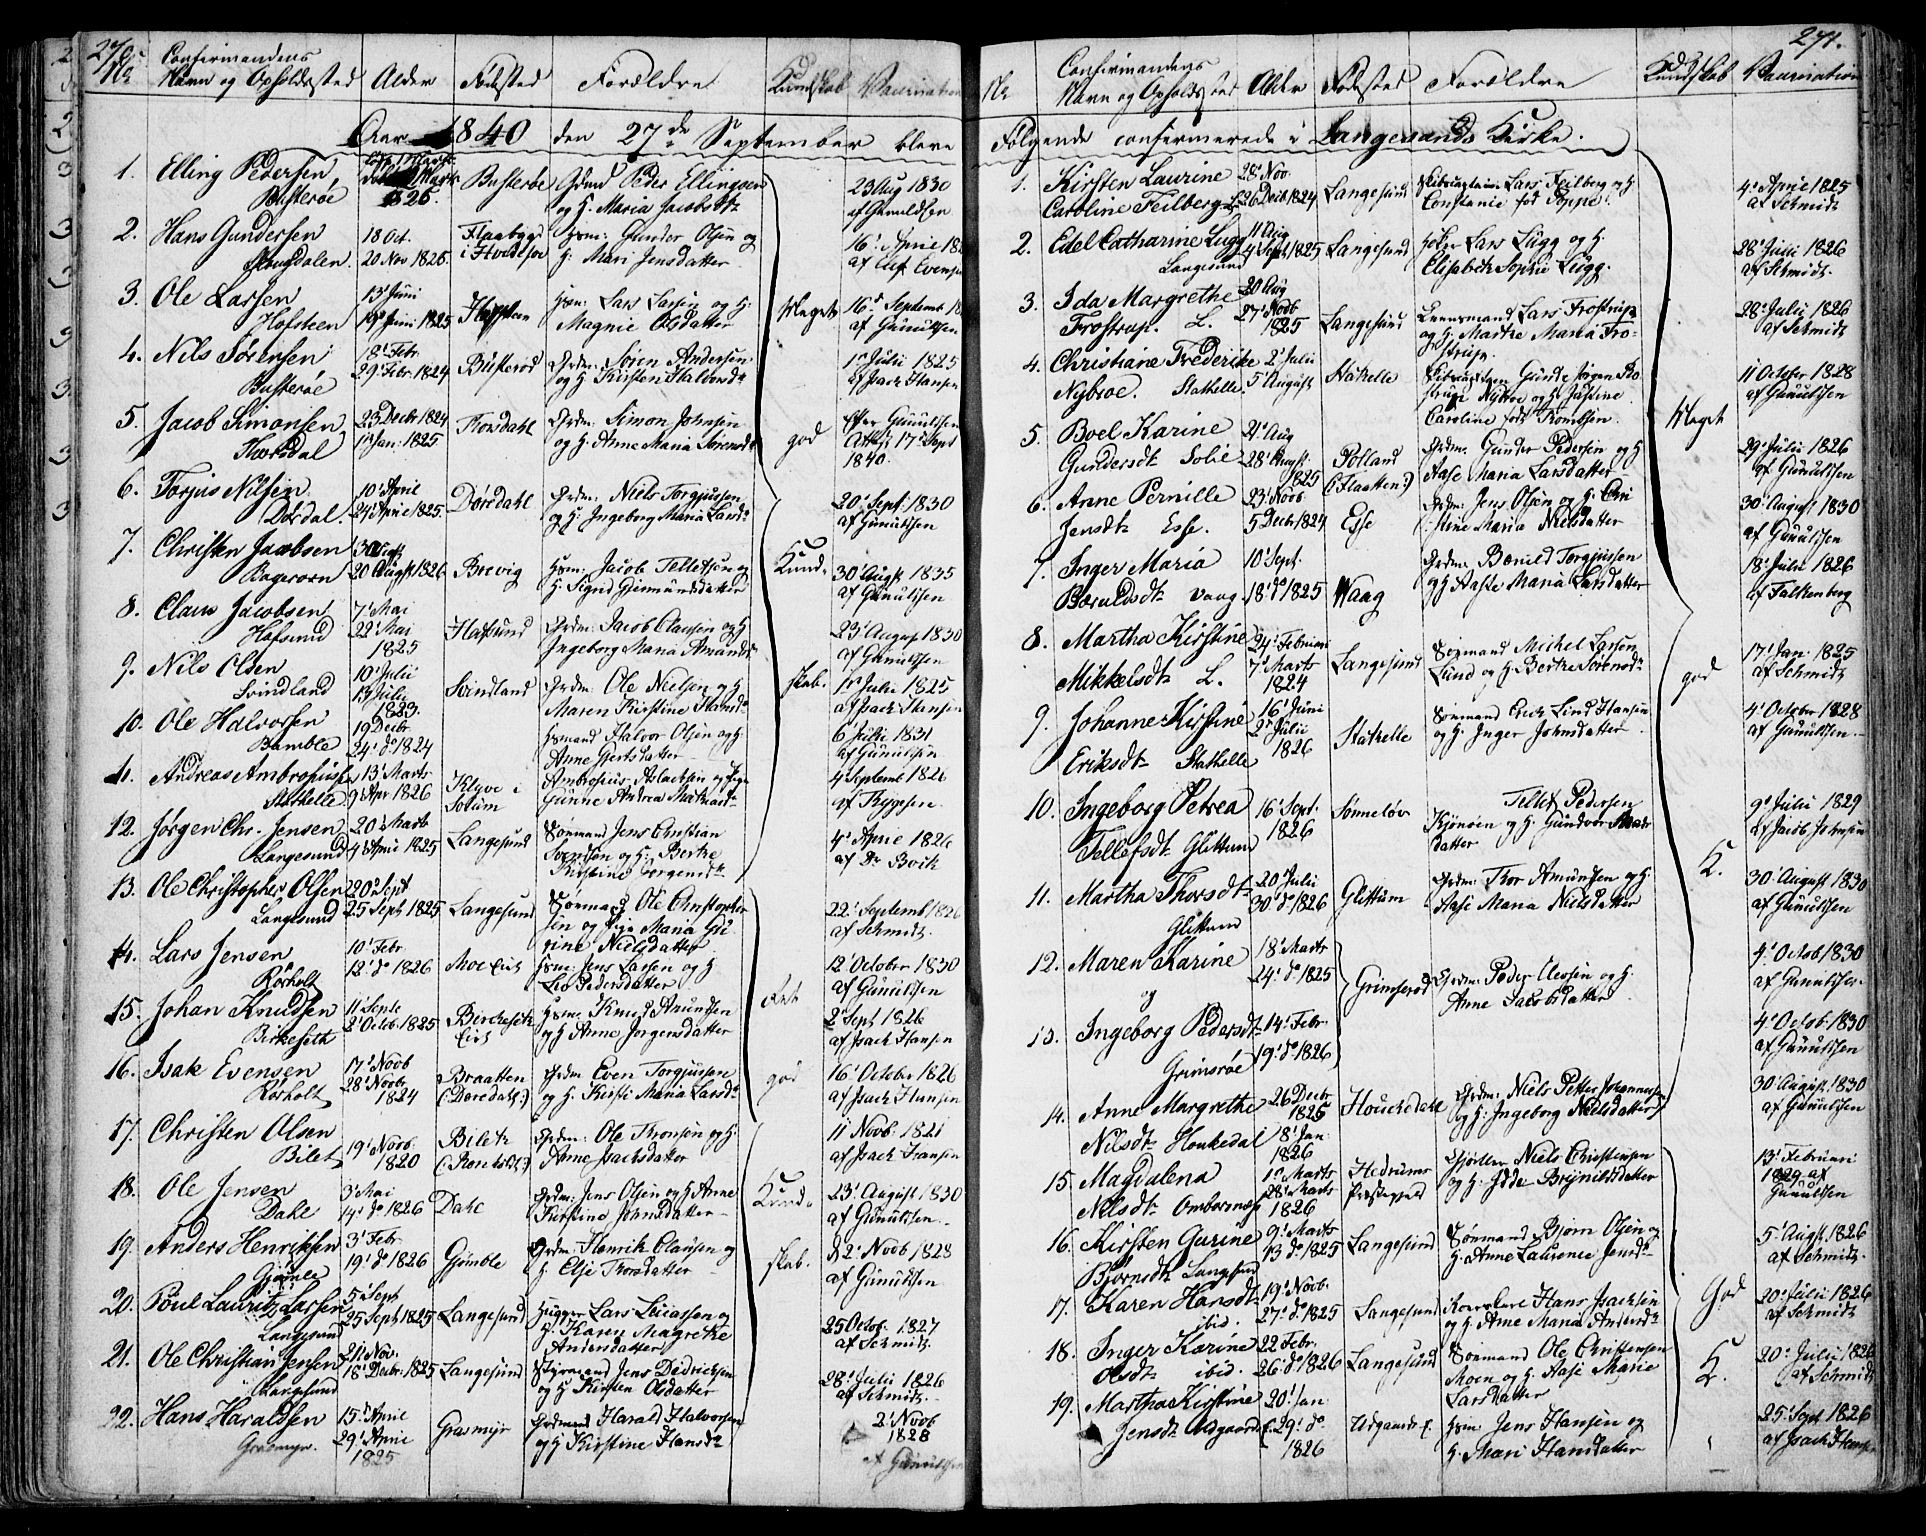 270.
No
Confirmandens
Navn og Opholdssted
Alder
Fødsted
Forældre
Kundskab
Vaccination
Aar 1840 den 27de September bleve
1. Elling Pedersen,
Busterøe
1825.
Busterøe
Grmd Peder Ellingsen
og H. Maria Jacobsdtr
23 Aug 1830
af Gunuldsen
2. Hans Gundersen
18 Oct.
20 Nov 1825.
Hsm: Gunder Olsen og
H. Mari Jensdatter
16' Aprie
3. Ole Larsen
Hofsteen
13' Juni
19' Juni 1825
Hofsteen
Hsm: Lars Larsen og H:
Magnie Olsdatter
Meget
af Gunulfsen
4. Nils Sørensen
Busterøe
18' Febr.
29' Febr. 1824
Busterød
Grdm: Søren Andersen
og H. Kirsten Halvorsdr
1' Julii 1825
af Isach Hansen
5. Jacob Simonsen
23 Decbr 1824
1' Jan: 1825
Grdm: Simon Johnsen
og H: Anne Maria Sørensdr
god
Efter Gunulfsen
Attest 17' Sept
1840.
6. Torjus Nilsen
Dørdal.
10' Aprie
24' Aprie 1825.
Døredahl
Grdm: Niels Torgjussen
og H: Ingeborg Maria Larsdr
20' Sept. 1830
af Gunulfsen
7. Christen Jacobsen
20 Augst 1826
Brevig
Hsm: Jacob Tellefsen og
H. Sigrid Giermundsdatter
Kund-
30' Augst 1835
af Gunulfsen
8. Claus Jacobsen
Hafsund
7' Mai
22' Mai
1825
Hafsund
Grdm: Jacob Clausen og H
Ingeborg Maria Amundsdr
23' August 1830
af Gunulfsen
9. Nils Olsen
Svindland
10' Julii
13' Julii
1823.
Svindland
Grdm: Ole Nielsen og H
Maren Kirstine Hansdr
skab.
1' Julii 1825
af Isach Hansen
10. Ole Halvorsen
Bamble
19 Decbr
24' do 1824
Hsmand Halvor Olsen og H.
Anne Gjertsdatter
6 Julii 1831
af Gunulfsen
11. Andreas Ambrosius
Stathelle
13' Marts
9' Apr 1826
Klyve i
Solum
Ambrosius Aslachsen og Pige
Gunne Andrea Mathiasdr
4 Septemb 1826
af Thygesen.
12. Jørgen Chr. Jensen
Langesund
20' Marts
4' Aprii 1825
Langesund
Sømand Jens Christian
Svendsen og H: Berthe
Kirstine Jørgensdr
4' Aprie 1826
af Dr Bvich
13. Ole Christopher Olsen
Langesund
20' Sept
25 Sept 1825
Langesund
Sømand Ole Christopher
sen og Pige Maria Ca
rine Nielsdatter
22' Septemb 1826
af Schmidt.
14. Lars Jensen
Rørholt
10' Febr
12' do 1826
Moe Eiet
Hsm: Jens Larsen og H
Lea Pedersdatter
12 October 1830
af Gunulfsen
15. Johan Knudsen
Birkeseth
11 Septe
2' Octob. 1825
Birkeseth
Eiet
Hsm: Knud Amundsen
og H Anne Jørgensdatter
2' Sept 1826
af Isach Hansen
16. Isak Evensen
Rørholt
17' Novb
28' Novbr
1824
Braatten
(: Døredahl:)
Grdm: Even Torgjussen
og H: Kirsti Maria Larsdr
god
16' October 1826
af Isach Hansen
17. Christen Olsen
Bilet
19' Novb.
1820
Grdm: Ole Thronsen og H.
Anne Isachsdatter
11 Novb. 1821
af Isach Fransen
18. Ole Jensen
Dahl
3' Mai
14' do 1826
Dahl
Grdm: Jens Olsen og H Anne
Kirstine Johnsdatter
Kund-
23' August 1830
af Gunulfsen
19. Anders Henriksen
Gjømle
3' Febr
19' do 1826
Gjømle
Grdm: Henrik Clausen og
H. Else Thorsdatter
skab.
2' Novb 1828
af Gunulfsen
20. Poul Lauritz Larsen
Langesund
5' Sept
25 Sept 1825
Langesund
Lars Eliassen og
H. Karen Magrethe
Andersdatter
25 Octob. 1827
af Schmidt
21. Ole Christian Jensen
Langesund
21' Nov.
18' Decbr. 1825
Langesund
Styrmand Jens Didrichsen
og H Kirsten Olsdatter
28' Julii 1826
af Schmidt.
22. Hans Haraldsen
Grasmyr
15' Aprie
29' Aprie
1825
Grasmyr
Grdmand Harald Halvorsen
og H Kirstine Hansdr
2' Novb
1828
af Gunulfsen
271.
No
Confirmandens
Navn og Opholdssted
Alder
Fødested
Forældre
Kundskab
Vaccination
Følgende confirmerede i Langesunds Kirke.
1. Kirsten Laurine
Caroline Feilberg L
28' Nov.
26 Decb 1824
Langesund
Lars Feilberg og H
Constanie fød Poppe.
4' Aprie 1825
af Schmidt
2. Edel Catharine Lugg
Langesund
11 Aug
4 Sept 1825
Langesund
Lars Lugg og H.
Elisabeth Sophie Lugg.
28' Julii 1826
af Schmidt.
3. Ida Margrethe
Frostrup. L.
20 Aug
27' Novb
1825
Langesund
Lars Frostrup
og H. Marthe Maria Fro-
strup.
28' Julii 1826
af Schmidt
4. Christiane Frederike
Nybroe. Stathelle.
2' Julii
5' August
Stathelle
Caroline født Thomsen
11 Octobr 1828
af Gunulfsen
Meget
5. Boel Karine
Gundersdt. Solie
21' Aug
28' Augst
1825
(: Flaatten:)
Grdm: Gunder Pedersen og H
Aase Maria Larsdatter
29' Julii 1826
af Gunulfsen
6. Anne Pernille
Jensdt. Esse.
23' Novb
5 Decb. 1824
Esse
Grdm: Jens Olsen og H: Chri
stine Maria Nielsdatter
30' August 1830
af Gunulfsen
7. Inger Maria
Bæruldsdt. Vaag
10' Sept.
18' do 1825
Waag
Grdm: Bærulд Torgjussen
og H Aaste Maria Larsdatter
18' Julii 1826
af Falkenberg
8. Martha Kirstine
Mikkelsdt. L.
24' Februari
7' Marts
1824
Langesund
Sømand Michel Larsen
Lund og H Berthe Sørensdr
god
17' Jan: 1825
af Schmidt
9. Johanne Kirstine
Eriksdt. Stathelle
16' Juni
2' Julii
1826
Stathelle
Sømand Erich Lind Hansen
og H. Inger Johnsdatter
4' October 1828
af Gunulfsen
10. Ingeborg Petrea
Tellefsdt. Glittum
16' Sept.
1826
Tellef Pedersen
Kjønsen og H. Gundvor
datter
9' Julii 1829
af Jacob Johnsen
K.
11. Martha Thorsdt.
Glittum
20' Julii
30' do 1826
Glittum
Grdm: Thor Amundsen og H
Aase Maria Nielsdatter
30' August 1830
af Gunulfsen
12. Maren Karine
og
18' Marts
24' do 1825
Grimserød
Grdm: Peder Olessen og H.
Anne Jacobsdatter
4' Octob. 1830
af Gunulfsen
13. Ingeborg Pedersdt.
Grimsrøe
14' Febr.
19' do 1826
4' Octob. 1830
af Gunulfsen
14. Anne Margrethe
Nilsdt. Houkedal
26 Decbr
1825
8' Jan
1826
Houckedahl
Grdm: Niels Petter Johannessen
og H: Ingeborg Nielsdatter
30' August. 1830
af Gunulfsen
15. Magdalena
Nilsdt. Omborsnes
1' Marts
28' Marts
1826
Hedrums
Præstegjeld
Niels Christensen
og H. Edde Brynildsdatter
13' Februari
1829 af
Gunulfsen
16. Kirsten Gurine
Bjørnsdt. Langesund
9' Marts
13 do 1825
Langesund
Sømand Bjørn Olsen og
H: Anne Laurenie Jensdr
5' Augst 1826
af Schmidt.
17. Karen Hansdt.
ibid.
19' Novb.
27' do 1825
Langesund
Hans Isachsen
og H. Anne Maria Andersdr
God
20' Julii 1826
af Schmidt
18. Inger Karine
Olsdt. ibid.
22 Febr.
26' do 1826
Langesund
Sømand Ole Christensen
Moen og H: Aase Marie
Larsdatter
K.
20' Julii 1826
af Schmidt
19. Martha Kirstine
Jensdt. Udgaard
20' Jan
29' do
1826
Udgaards E.
Hsm: Jens Hansen og
H. Mari Hansdatter
25' Sept 1826
af Isach Hansen